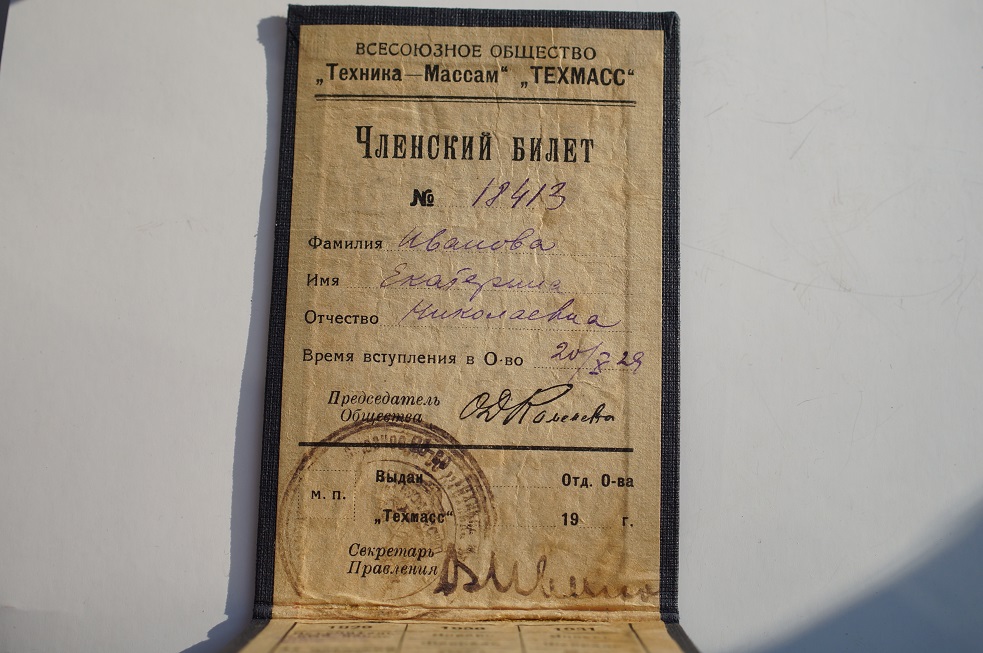 ВСЕСОЮЗНОЕ ОБЩЕСТВО
„Техника—Массам“ „ТЕХМАСС“
Членский билет
№ 18413
Фамилия Иванова
Имя Екатерина
Отчество Николаевна
Время вступления в О-во 20/X 29
Председатель
Общества
Выдан Отд. О-ва
м. п.
„Техмасс“ 19 г.
Секретарь
Правления
1929 1930 1931